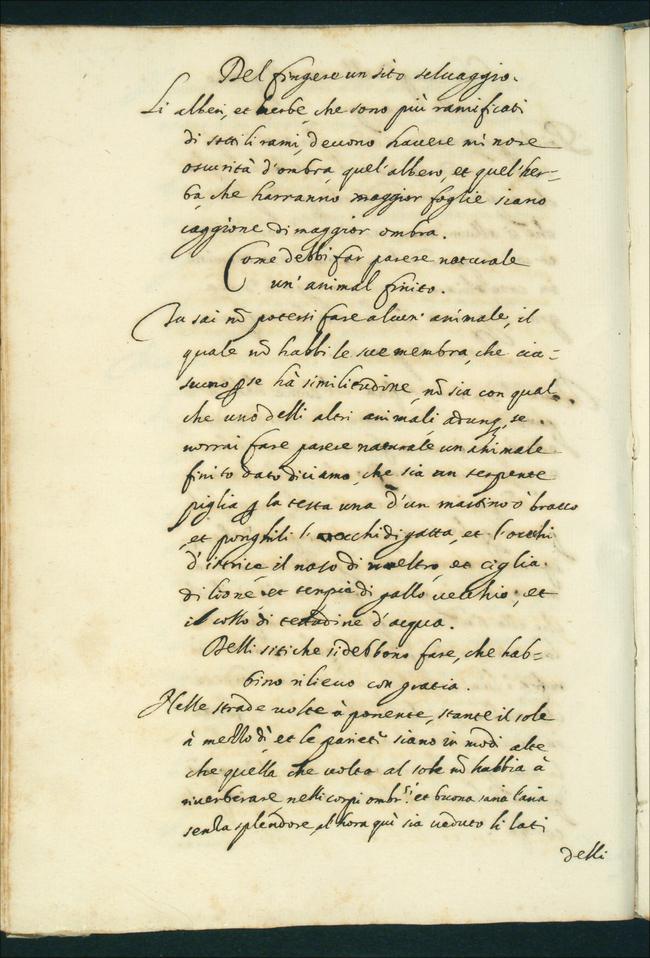 Del fingere un sito seluaggio.
Li alberi, et herbe, che sono più ramificati
di sottili rami, deuono hauere minore
oscurità d'ombra, quel'albero, et quel'her-
ba, che harranno maggior foglie siano
caggione di maggior ombra.
Come debbi far parere naturale
un'animal finito.
Tu sai nō potersi fare alcun' animale, il
quale nō habbi le sue membra, che cia-
scuno ꝑ se hà similitudine, nō sia con qual-
che uno delli altri animali, adunq̣, se
uorrai fare parere naturale un animale
finito dato diciamo, che sia un serpente
piglia ꝑ la testa una d'un mastino ò bracco
et ponghili l' occhi di gatta, et l'orecchi
d'istrice il naso di ueltro, et ciglia
di lione, et tempie di gallo uecchio, et
il collo di testudine d'acqua.
Delli siti che si debbono fare, che hab-
bino rilieuo con gratia.
Nelle strade uolte à ponente, stante il sole
à mezzo dì, et le parieti siano in modi alte
che quella che uolta al sole nō habbia à
riuerberare nelli corpi ombr:ⁱ et buona saria l'aria
senza splendore, al hora quì sia ueduto li lati
delli